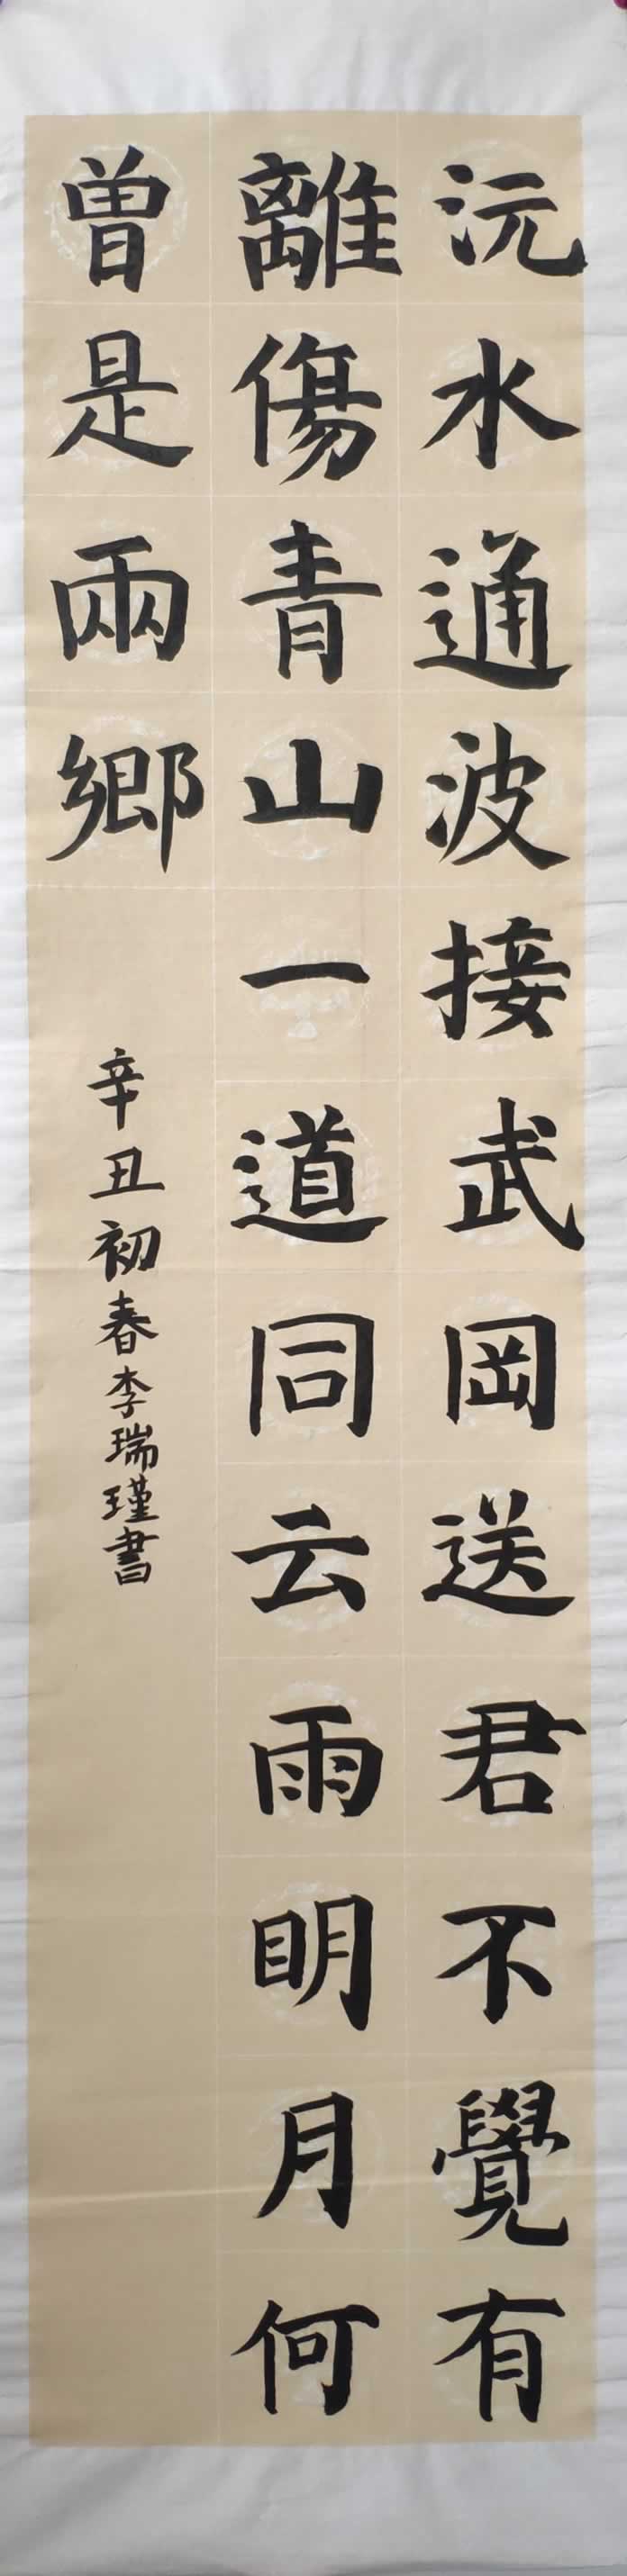 沅水通波接武岡送君不覺有
離傷青山一道同云雨明月何
曾是兩鄉
辛丑初春李瑞瑾書